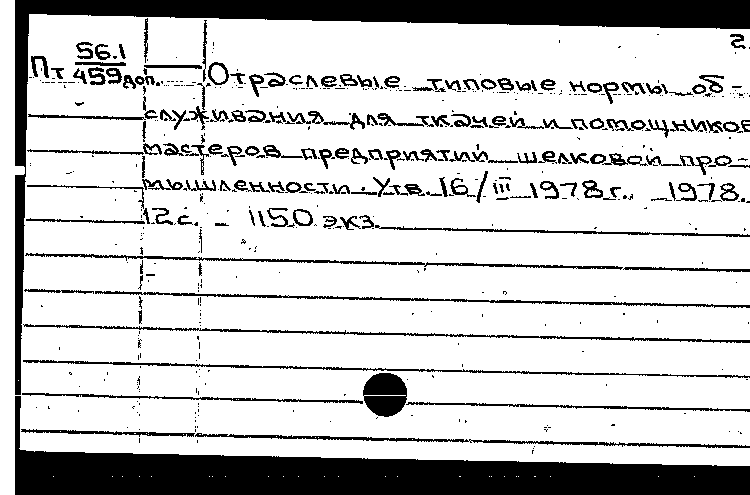 2.
Пт 56.1
459доп. Отраслевые типовые нормы об-
служивания для ткачей и помощников
мастеров предприятий шелковой про-
мышленности. Утв. 16/III 1978 г., 1978.
12 с. - 1150 экз.